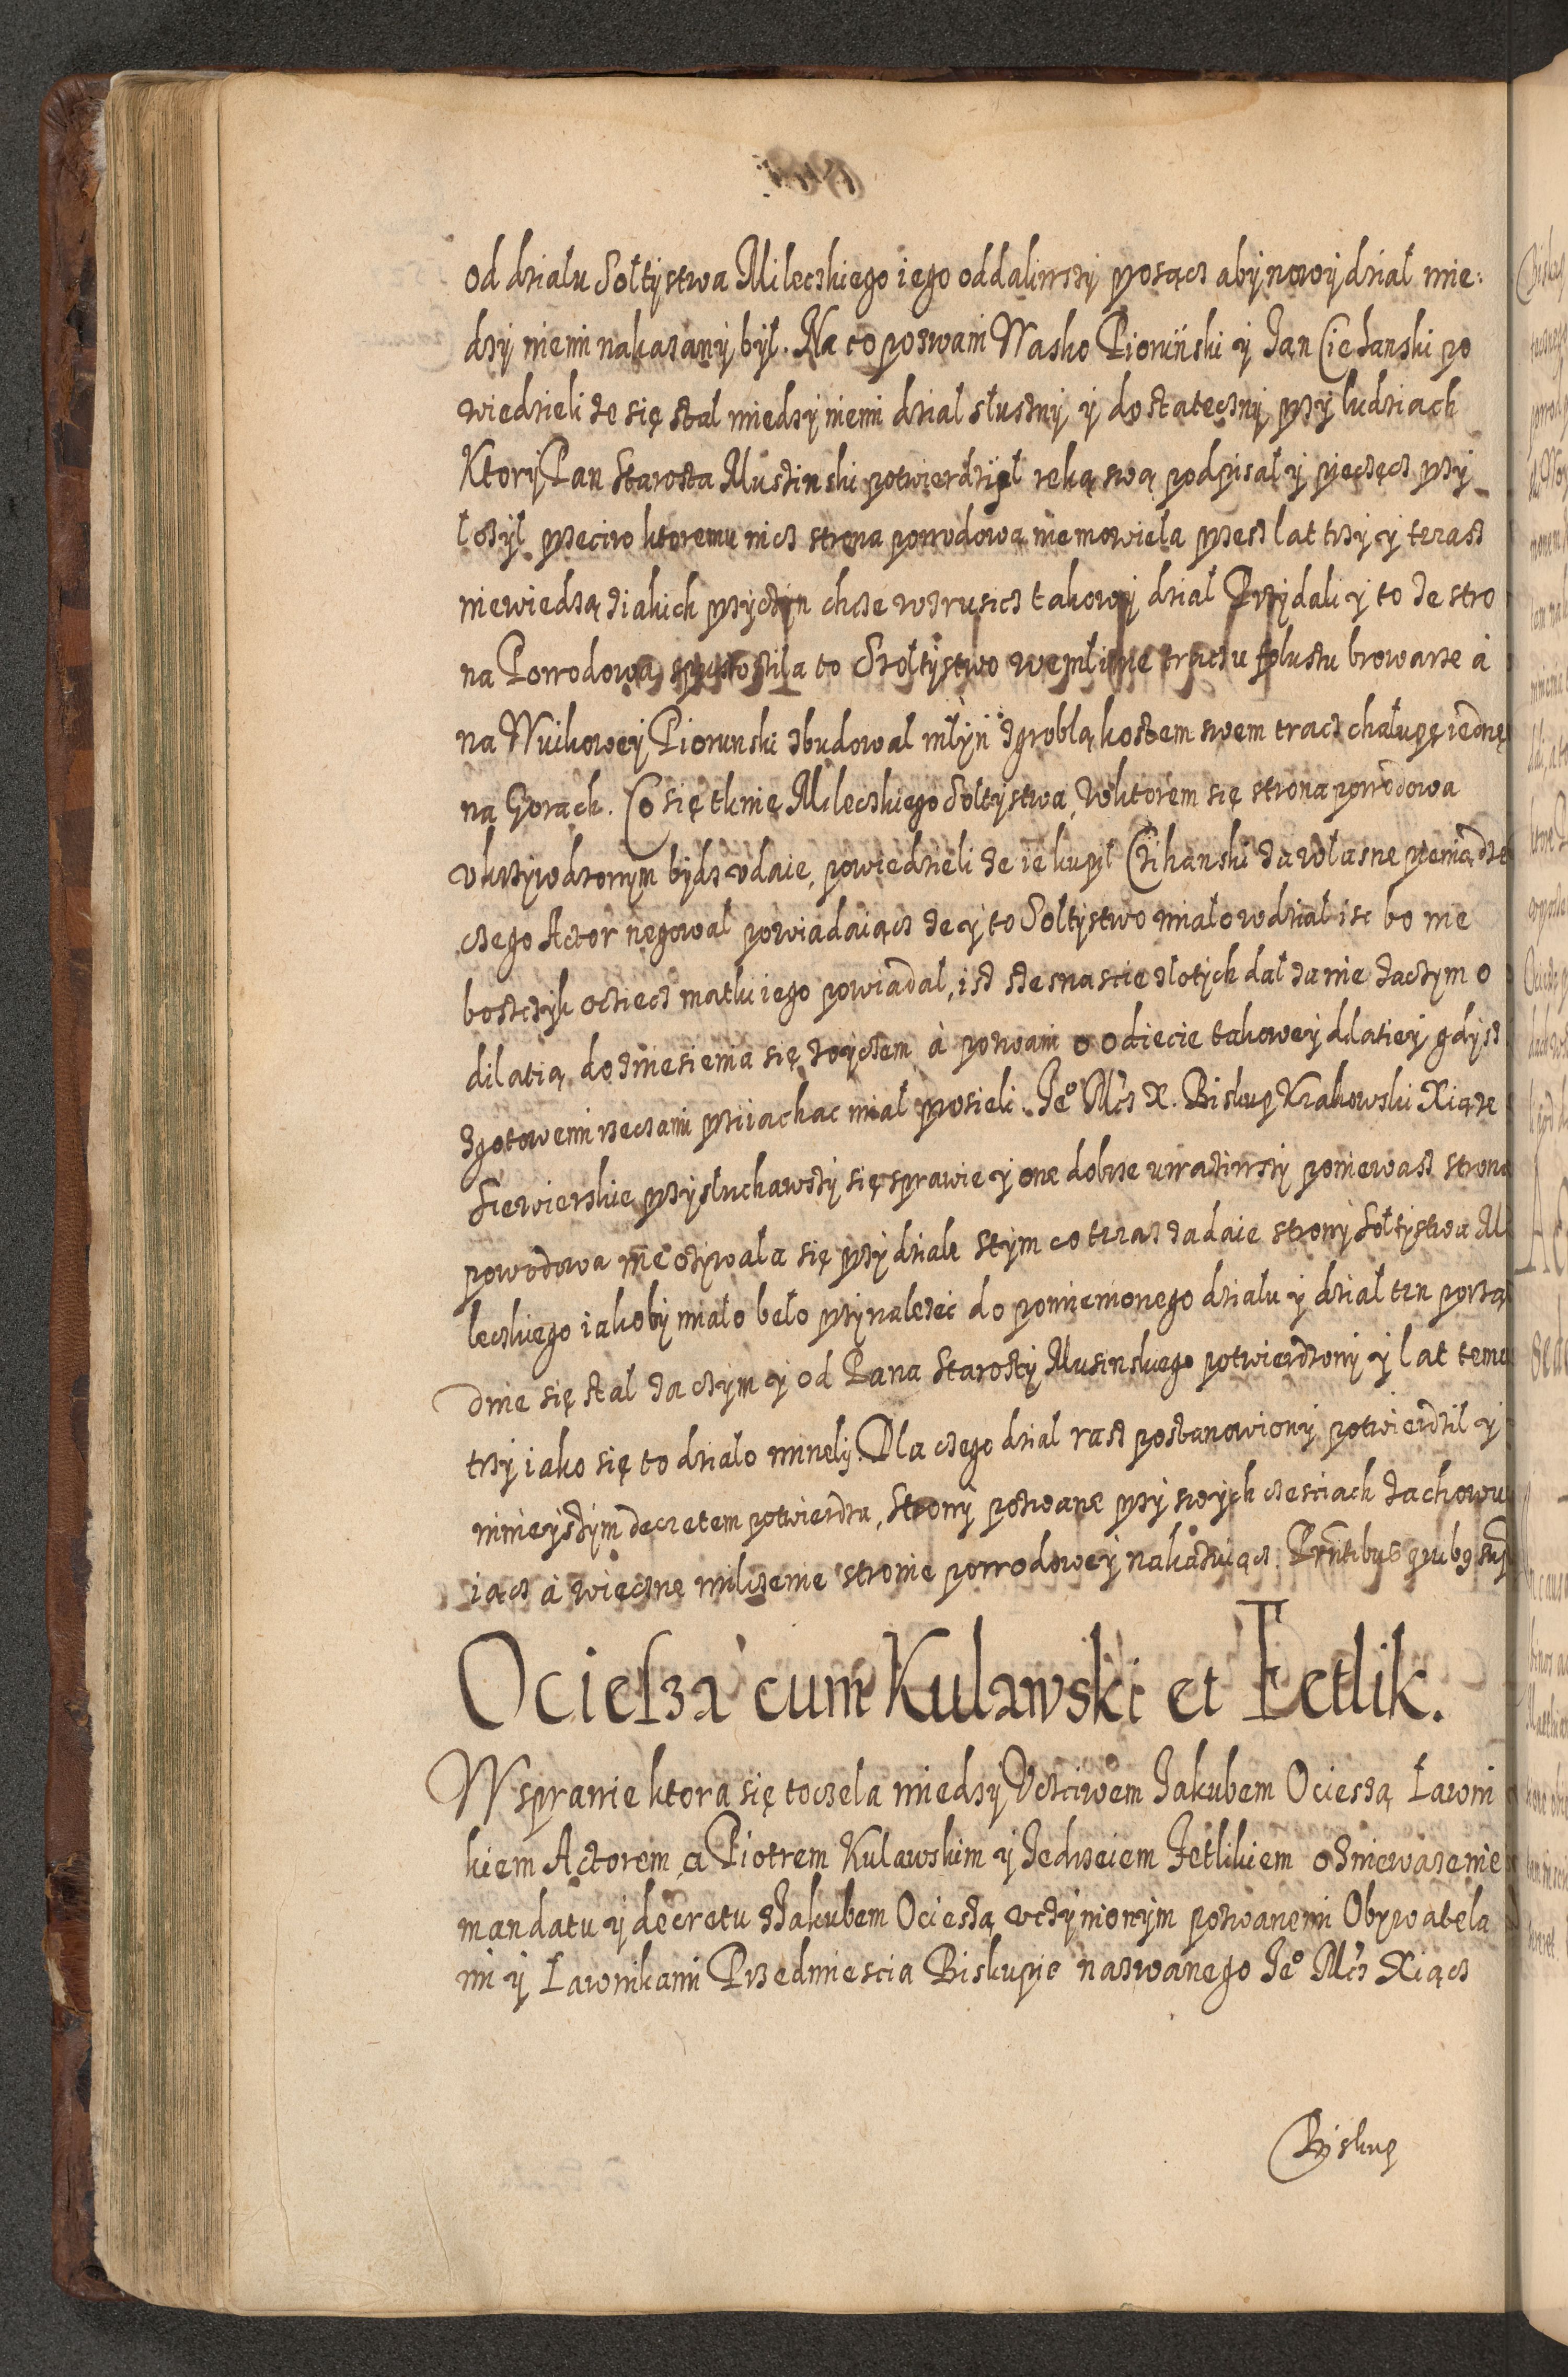 od działu Sołtystwa Mileczkiego iego oddaliwszy prosącz aby nowy dział mie:
dzy niemi nakazany był. Na co pozwani Wasko Pioruński y Jan Cieżanski po
wiedzieli że się stał miedzy niemi dział słuszny y dostateczny przy ludziach
Ktory Pan Starosta Muszinski potwierdził reką swą podpisał y pieczęcz przy
łożył przeciwko ktoremu nicz strona powodowa nie mowiela przesz lat trzy y terasz
niewiedzą z iakich przyczyn chcze wzrusicz takowy dział Przydali y to że stro
na Powodowa spustoszila to Szołtystwo we młinie traczu folustu browarze á
na Wuikowey Piorunski zbudował młyn z groblą kosztem swem tracz chałupę iednę
na Gorach. Co się tknie Mileczkiego Sołtystwa, w ktorem się strona powodowa
ukrzywdzonym bydz udaie, powiedzieli że ie kupił Czihanski za własne pieniądze
czego Actor negował powiadaiącz że y to Sołtystwo miało w dział isc bo nie
boszczyk ocziecz matki iego powiadał, isz szesnascie złotych dał za nie zaczym o
dilatią do zniesienia się z oyczem á pozwani o odiecie takowey dilatiey gdysz
z gotowemi rzeczami przijachac miał prosieli. Jeº Mcz X. Biskup Krakowski Xiąze
Siewierskie przysłuchawszy się sprawie y one dobrze uwazliwszy poniewasz strona
powodowa nie ozywała się przy dziale s tym co teraz zadaie strony Sołtystwa Mi
leczkiego iakoby miało beło przynalezec do pomienionego działu y dział ten porzą
dnie się stał zaczym y od Pana Starosty Musinskiego potwierdzony y lat temu
trzy iako się to działo mineły. Dla czego dział rasz postanowiony potwierdził y
ninieyszym decretem potwierdza, Strony pozwane przy swych czesciach zachowu
iącz á wieczne milczenie stronie powodowey nakazuiącz. Prntibus quibus sup
Ociesza cum Kulawski et Fetlik.
W sprawie ktora się toczela miedzy Uczciwem Jakubem Ocieszą Ławni
kiem Actorem a Piotrem Kulawskim y Jedrzeiem Fetlikiem o zniewazenie
mandatu y decretu z Jakubem Ocieszą uczynionym pozwanemi Obywatela
mi y Ławnikami Przedmiescia Biskupie nazwanego Jeº Mcz Xiącz
Biskup